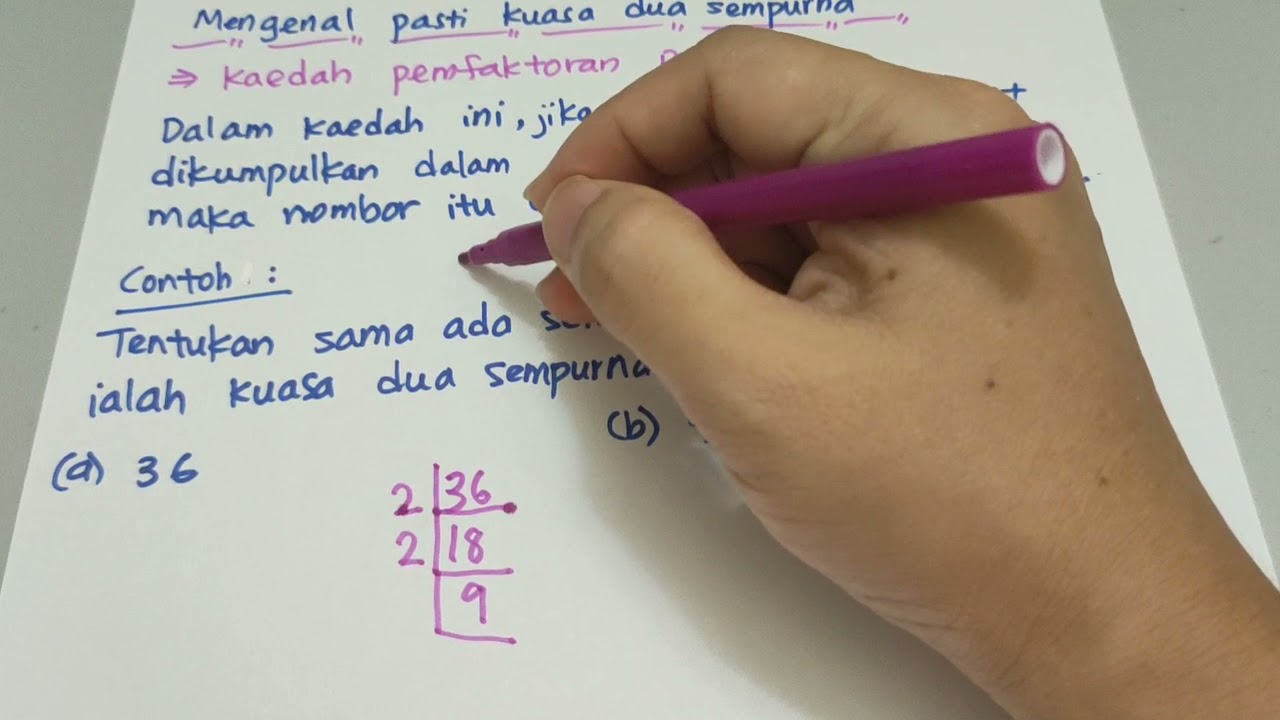 Mengenal pasti kuasa dua sempurna
⇒ kaedah pemfaktoran
Dalam kaedah ini, jika
dikumpulkan dalam
maka nombor itu
Contoh :
Tentukan sama ada
ialah kuasa dua sempurna
(a) 36
(b)
2 36
2 18
9